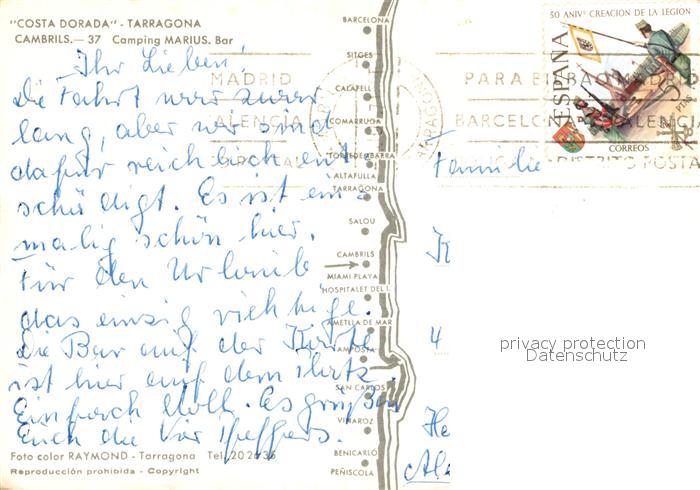 "COSTA DORADA" - TARRAGONA
CAMBRILS.— 37 Camping MARIUS. Bar
Ihr Lieben!
Die Fahrt war zwar
lang, aber wir sind
dafür reichlich ent-
schädigt. Es ist ein-
malig schön hier.
Für den Urlaub
das einzig richtige.
Die Bar auf der Karte
ist hier auf dem Platz.
Einfach toll. Es grüßen
Euch die vier
Foto color RAYMOND - Tarragona Tel. 20 26 35
Reproducción prohibida - Copyright
BARCELONA
SITGES
CALAFELL
COMARRUGA
TORREDEMBARRA
ALTAFULLA
TARRAGONA
SALOU
CAMBRILS
MIAMI-PLAYA
HOSPITALET DEL I.
AMETLLA DE MAR
AMPOSTA
SAN CARLOS
VINAROZ
BENICARLÓ
PEÑISCOLA
MADRID
VALENCIA
PARA BILBAO MADRID
BARCELONA VALENCIA
DISTRITO POSTAL
50 ANIVº CREACION DE LA LEGION
ESPAÑA
CORREOS
Familie
K
4
He
privacy protection
Datenschutz